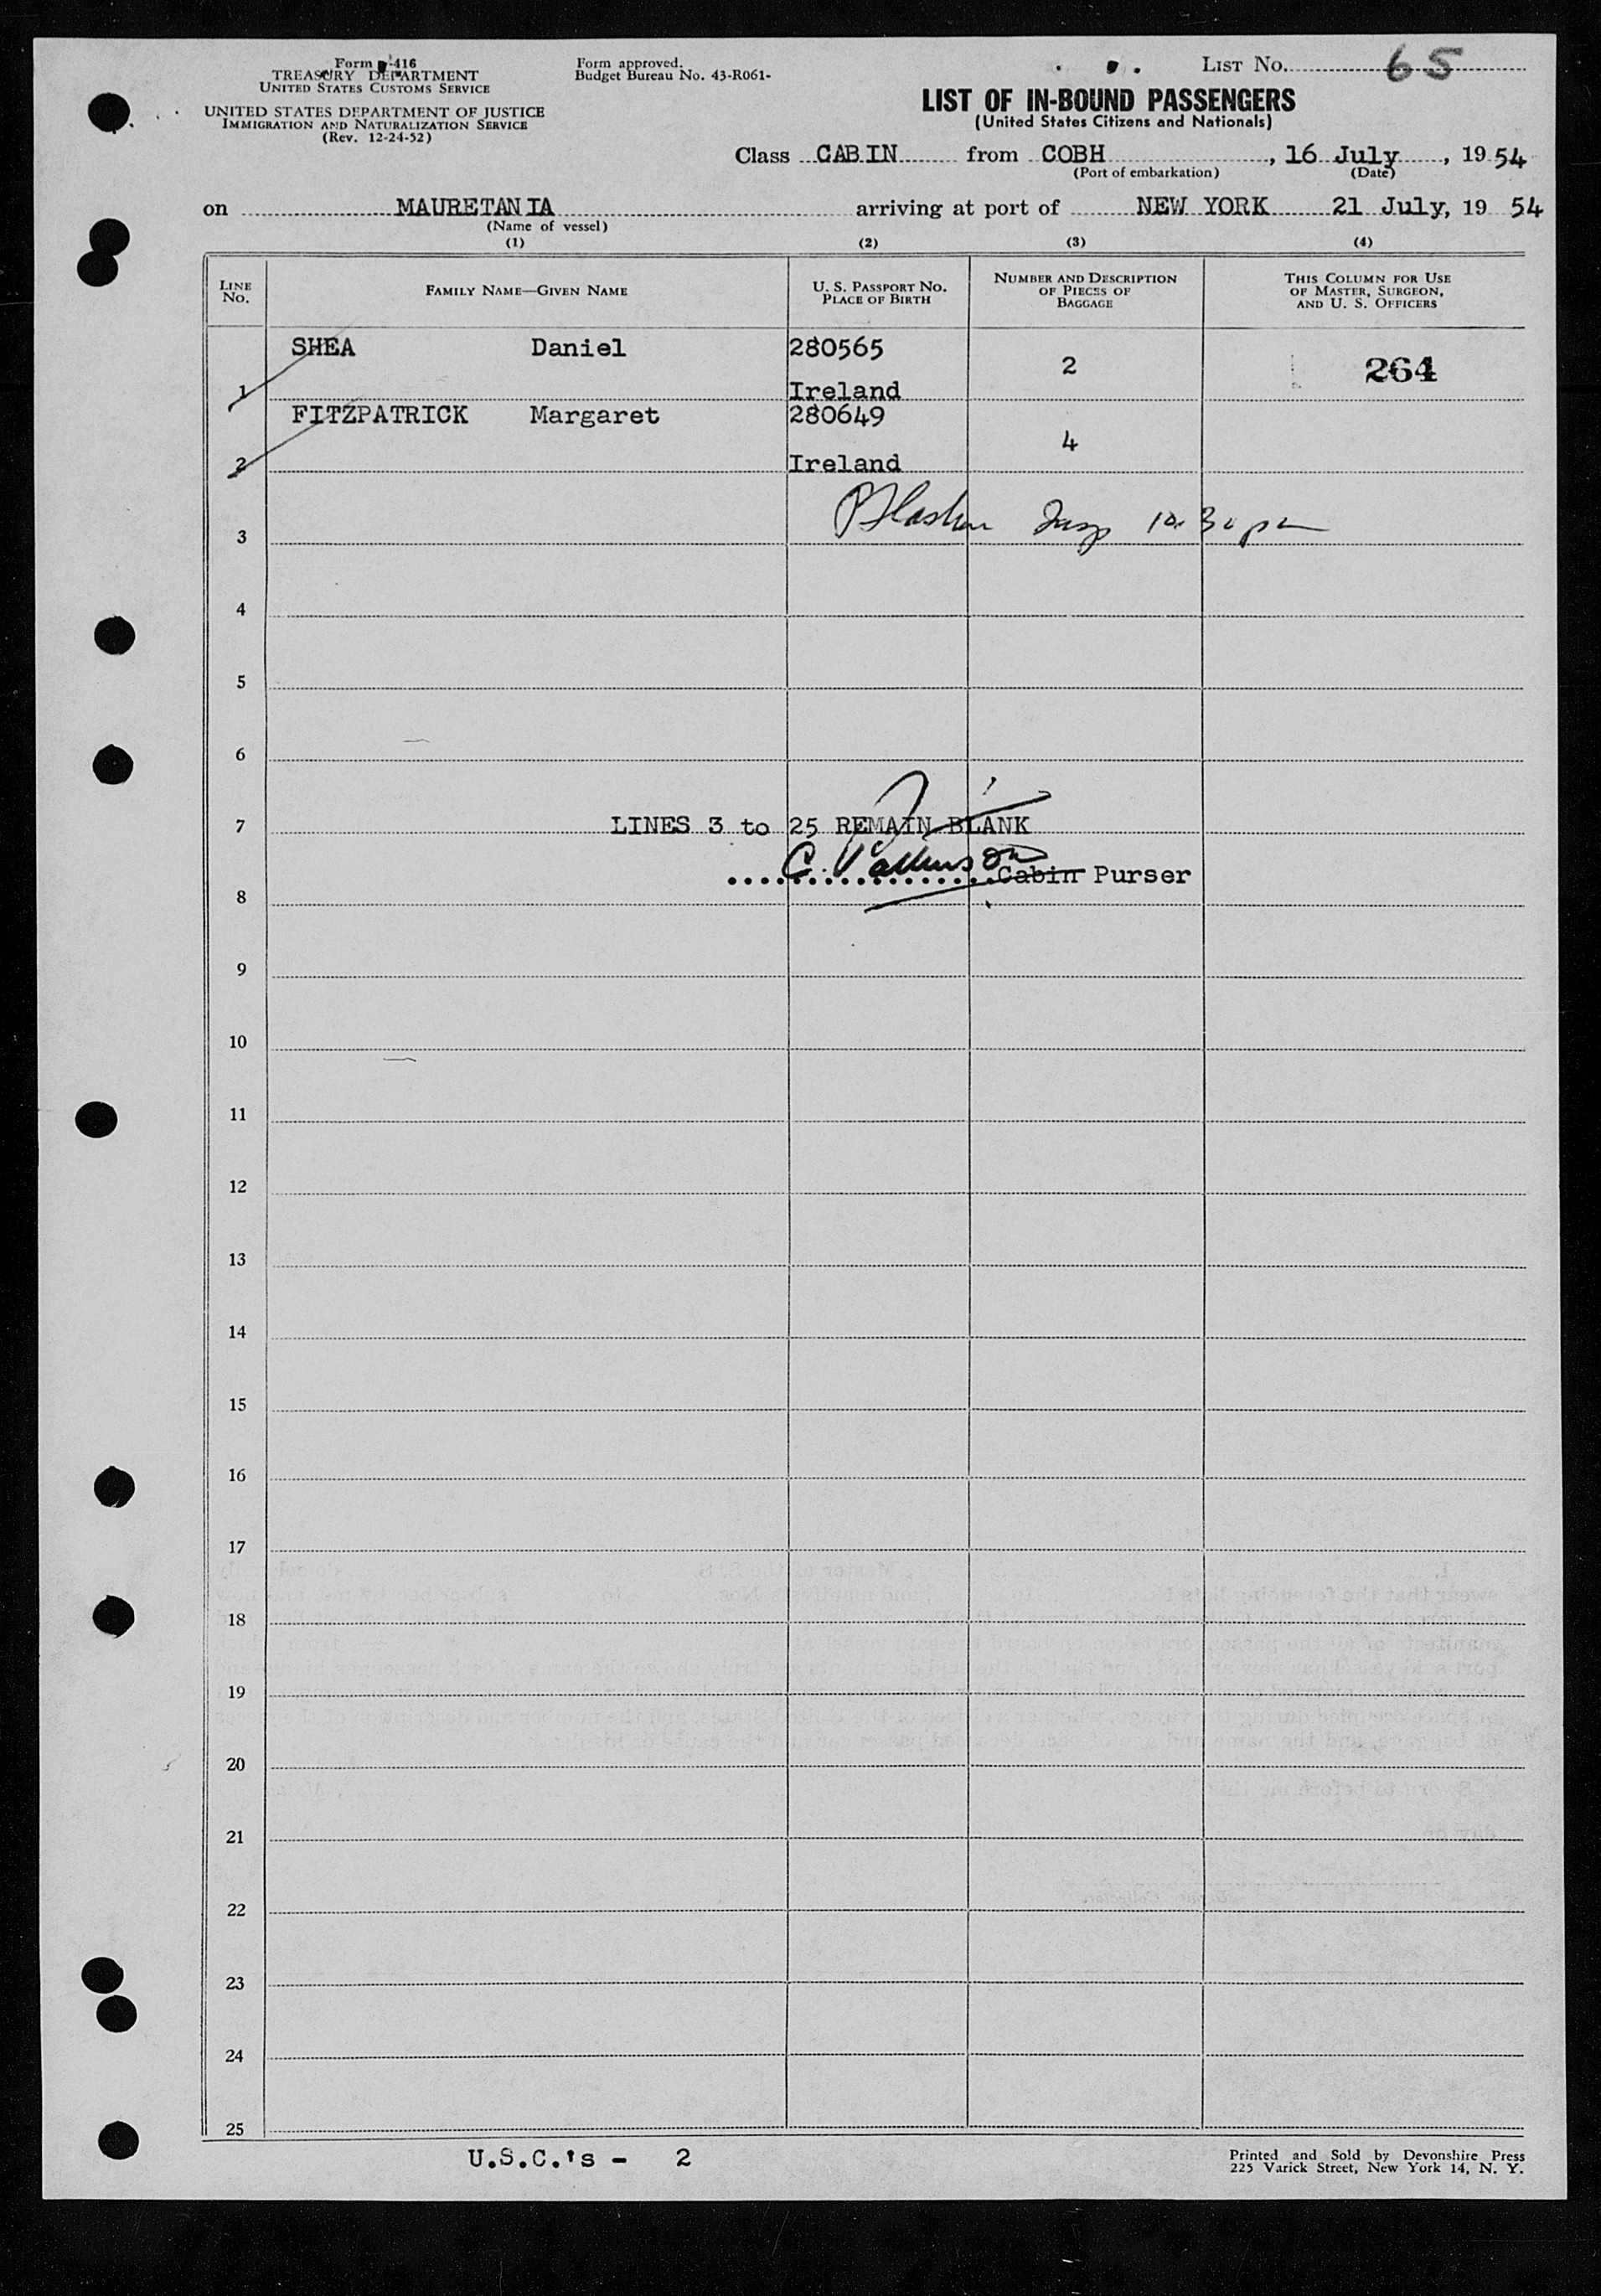 Form I-416
TREASURY DEPARTMENT
UNITED STATES CUSTOMS SERVICE
UNITED STATES DEPARTMENT OF JUSTICE
IMMIGRATION AND NATURALIZATION SERVICE
(Rev. 12-24-52)
Form approved.
Budget Bureau No. 43-R061-
LIST No. 65
LIST OF IN-BOUND PASSENGERS
(United States Citizens and Nationals)
Class CABIN from COBH, 16 July, 1954
(Port of embarkation) (Date)
on MAURETANIA arriving at port of NEW YORK 21 July, 19 54
(Name of vessel)
(1) (2) (3) (4)
LINE No. FAMILY NAME—GIVEN NAME U. S. PASSPORT No. PLACE OF BIRTH NUMBER AND DESCRIPTION OF PIECES OF BAGGAGE THIS COLUMN FOR USE OF MASTER, SURGEON, AND U. S. OFFICERS
1 SHEA Daniel 280565 Ireland 2 264
2 FITZPATRICK Margaret 280649 Ireland 4
3 10.30 pm
4
5
6
7 LINES 3 to 25 REMAIN BLANK
Cabin Purser
8
9
10
11
12
13
14
15
16
17
18
19
20
21
22
23
24
25
U.S.C.'s - 2
Printed and Sold by Devonshire Press
225 Varick Street, New York 14, N. Y.